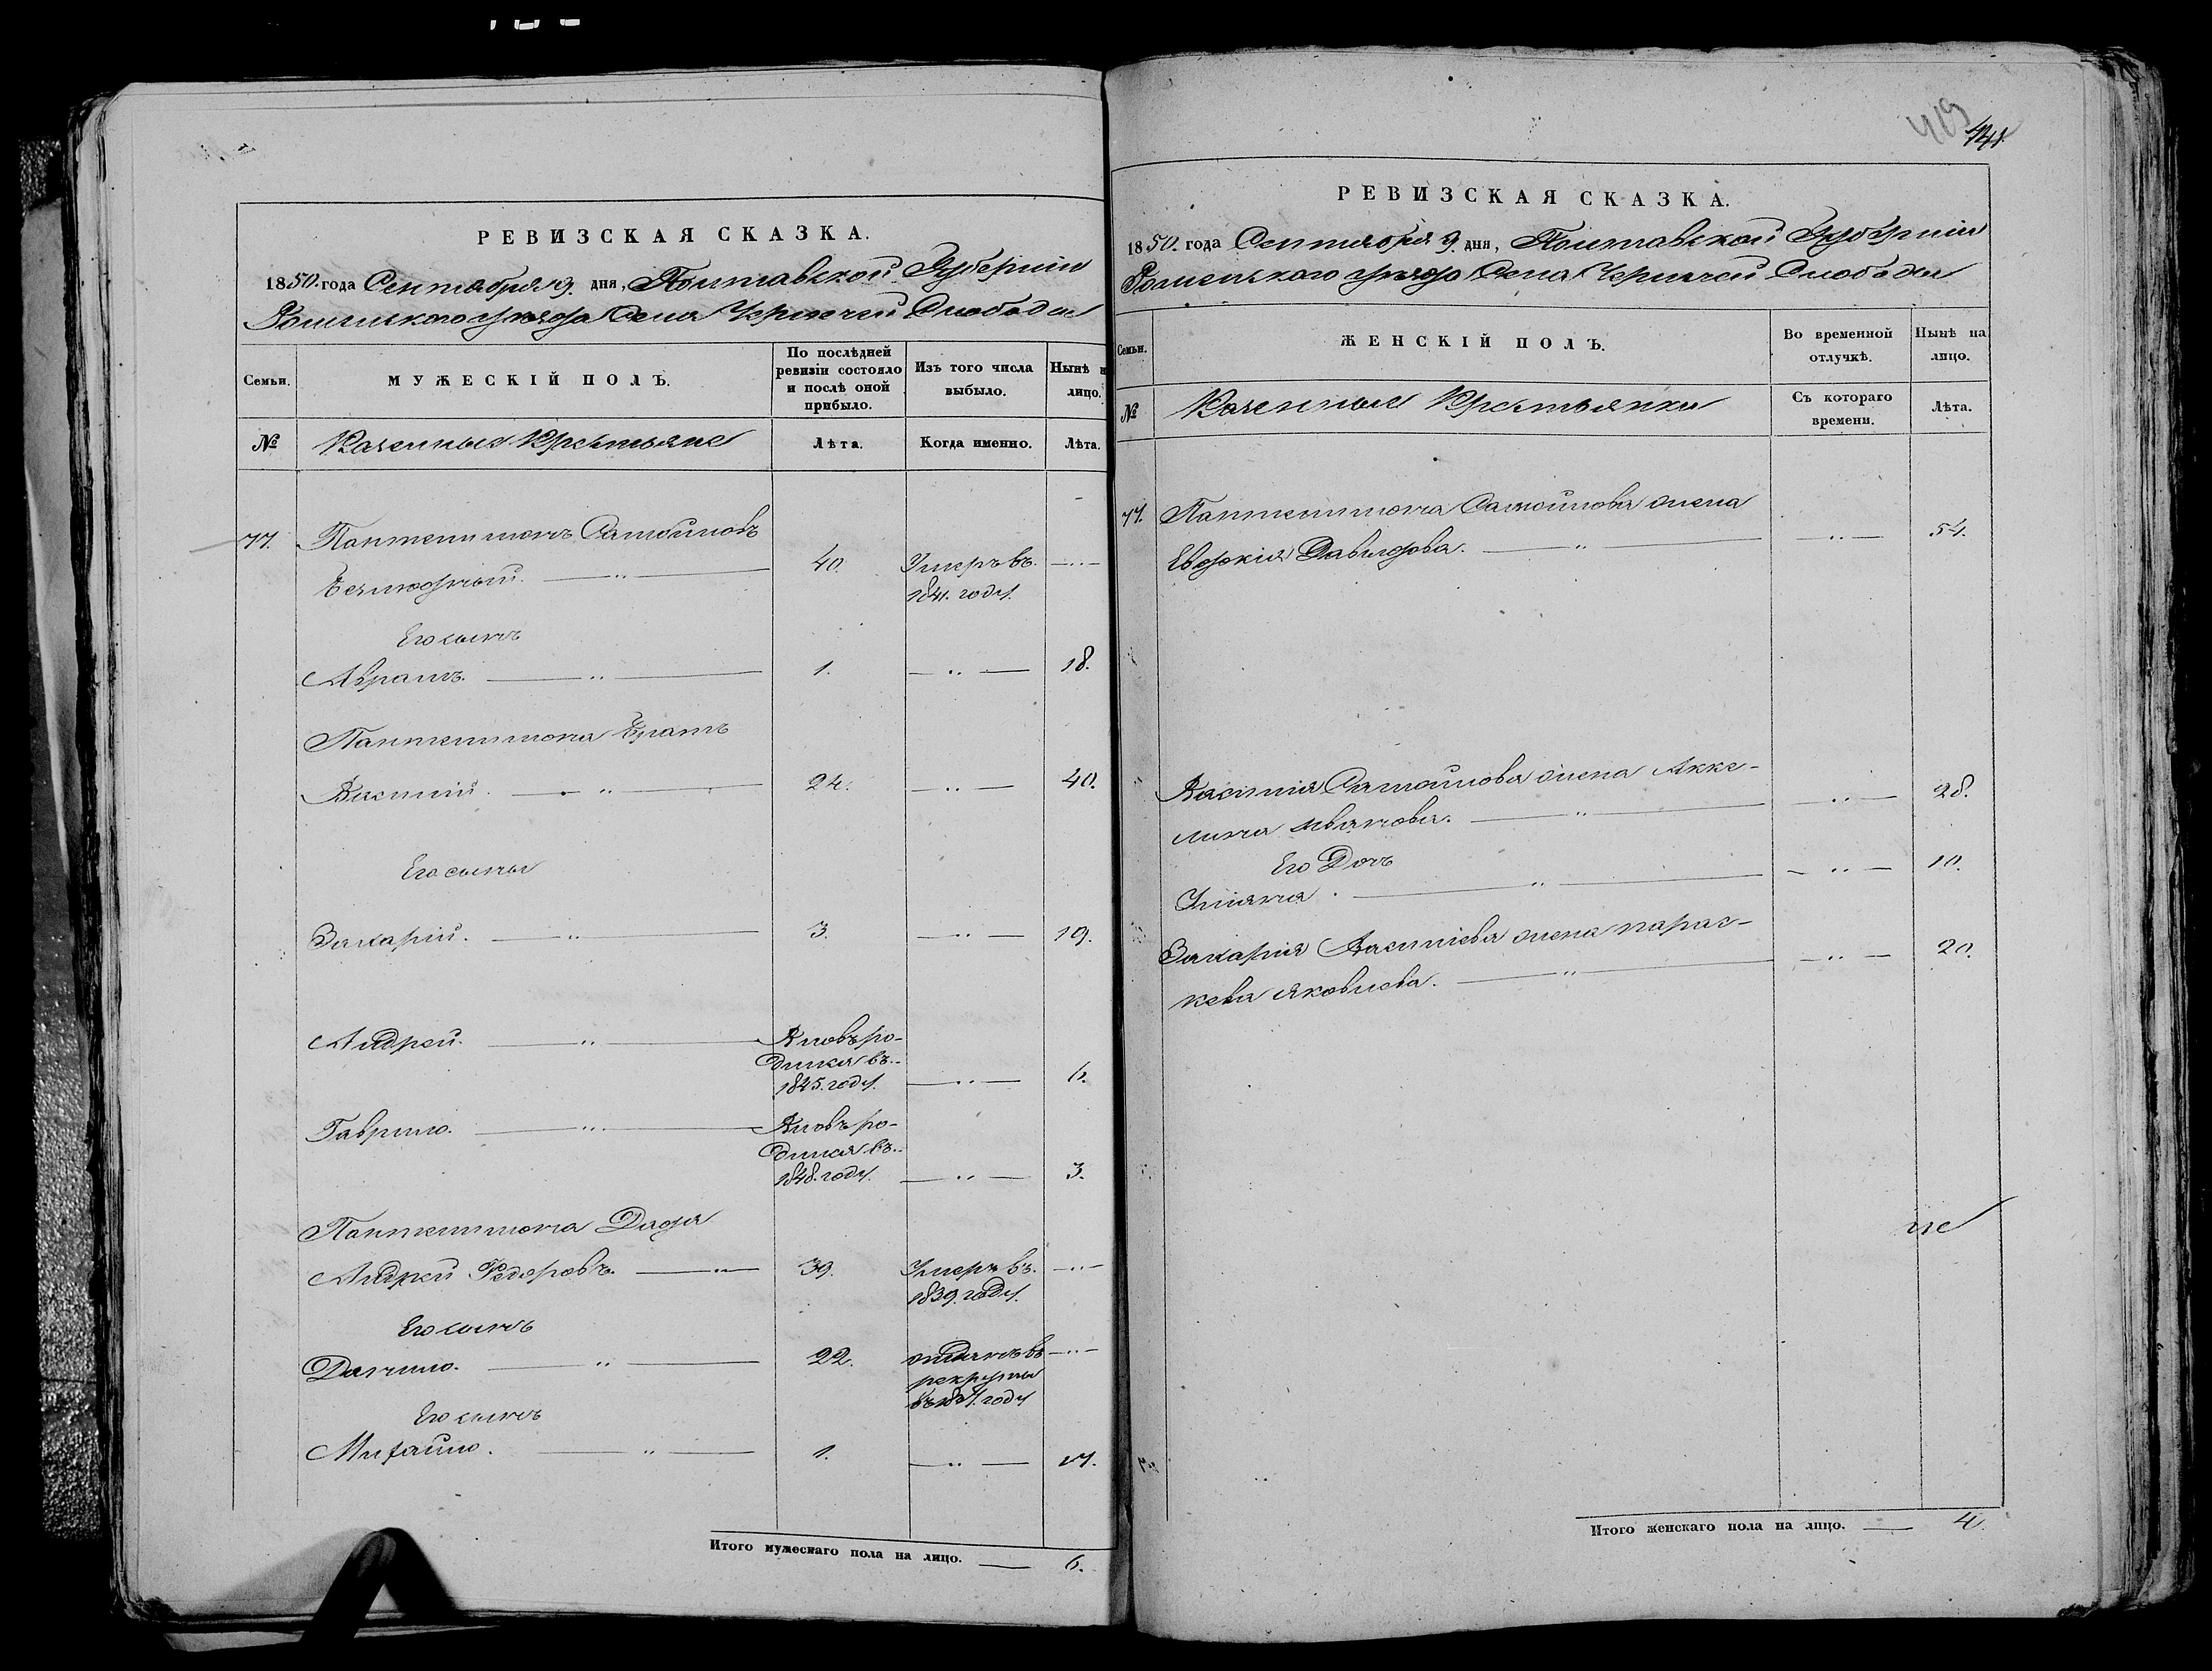 РЕВИЗСКАЯ СКАЗКА.
1850. года Сентября 9. дня, Полтавской Губерніи
Роменскаго уѣзда Села Чернечей Слободы
Семьи.
МУЖЕСКІЙ ПОЛЪ.
По послѣдней ревизіи состояло и послѣ оной прибыло.
Изъ того числа выбыло.
Нынѣ н лицо.
№
Казенные Крестьяне
Лѣта.
Когда именно.
Лѣта.
77. Пантелимонъ Самойловъ
40. Умеръ въ
1841. году.
Его сынъ
Аврамъ. 1. 18.
Пантелимона Братъ
Василій. 24. 40.
Его сыны
Захарій. 3. 19.
Андрей. Вновь ро-
дился въ
1845. году. 6.
Гаврило. Вновь ро-
дился въ
1848. году. 3.
Пантелимона Дядя
Андрей Федоровъ. 39. Умеръ въ
1839. году.
Его сынъ
Данило. 22. отданъ въ
рекруты
году
Его сынъ
Михайло. 1. 17.
Итого мужескаго пола на лицо. 6.
419
РЕВИЗСКАЯ СКАЗКА.
1850. года Сентября 9. дня, Полтавской Губерніи
Роменскаго уѣзда Села Чернечей Слободы
Семьи.
ЖЕНСКІЙ ПОЛЪ.
Во временной отлучкѣ.
Нынѣ на лицо.
№
Казенные Крестьянки
Съ котораго времени.
Лѣта.
77. Пантелимона Самойлова жена
Евдокія Давыдова. 54.
Василія Самойлова жена Акке-
лина Иванова. 28.
Его Дочь
Уліяна 10.
Захарія Василіева жена Парас-
кева Яковлева. 20.
Итого женскаго пола на лицо. 4.